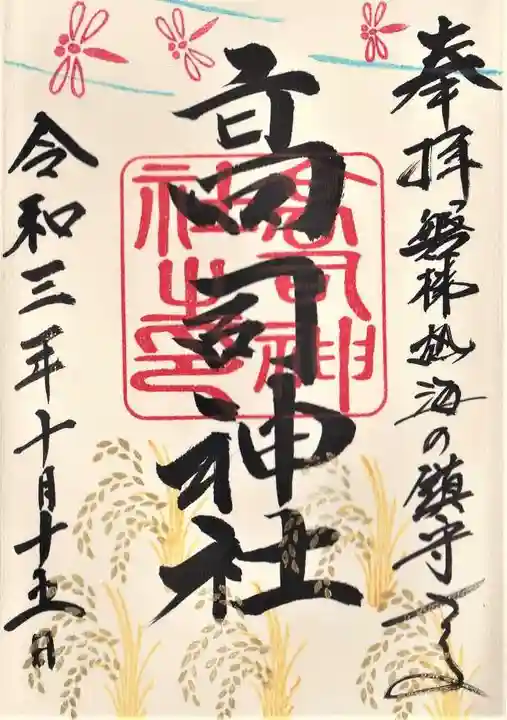 奉拝 磐梯熱海の鎮守
高司神社
高司神社之印
令和三年十月十五日